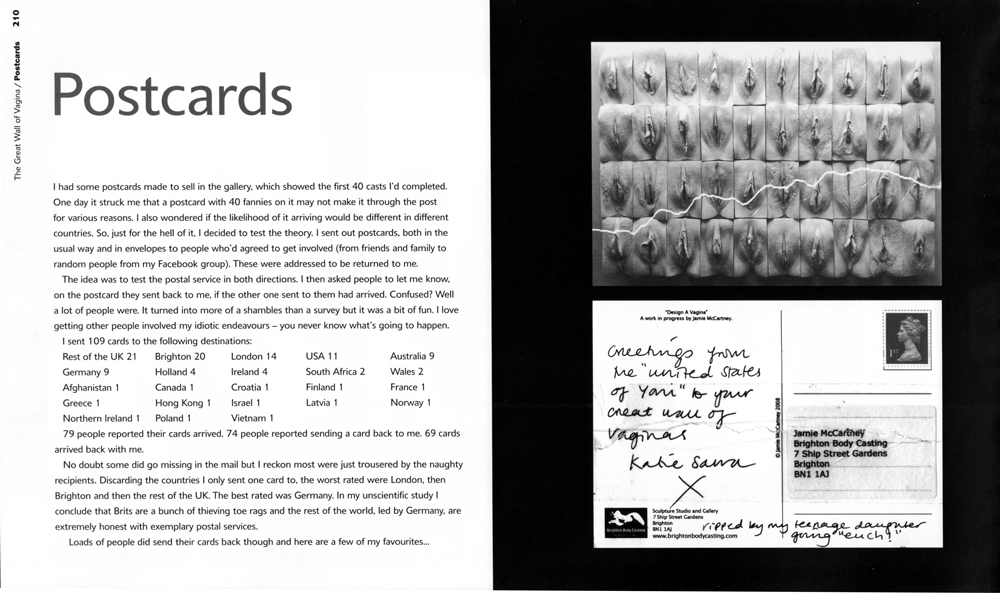 The Great Wall of Vagina / Postcards 210
Postcards
I had some postcards made to sell in the gallery, which showed the first 40 casts I'd completed.
One day it struck me that a postcard with 40 fannies on it may not make it through the post
for various reasons. I also wondered if the likelihood of it arriving would be different in different
countries. So, just for the hell of it, I decided to test the theory. I sent out postcards, both in the
usual way and in envelopes to people who'd agreed to get involved (from friends and family to
random people from my Facebook group). These were addressed to be returned to me.
The idea was to test the postal service in both directions. I then asked people to let me know,
on the postcard they sent back to me, if the other one sent to them had arrived. Confused? Well
a lot of people were. It turned into more of a shambles than a survey but it was a bit of fun. I love
getting other people involved my idiotic endeavours – you never know what's going to happen.
I sent 109 cards to the following destinations:
Rest of the UK 21 Brighton 20 London 14 USA 11 Australia 9
Germany 9 Holland 4 Ireland 4 South Africa 2 Wales 2
Afghanistan 1 Canada 1 Croatia 1 Finland 1 France 1
Greece 1 Hong Kong 1 Israel 1 Latvia 1 Norway 1
Northern Ireland 1 Poland 1 Vietnam 1
79 people reported their cards arrived. 74 people reported sending a card back to me. 69 cards
arrived back with me.
No doubt some did go missing in the mail but I reckon most were just trousered by the naughty
recipients. Discarding the countries I only sent one card to, the worst rated were London, then
Brighton and then the rest of the UK. The best rated was Germany. In my unscientific study I
conclude that Brits are a bunch of thieving toe rags and the rest of the world, led by Germany, are
extremely honest with exemplary postal services.
Loads of people did send their cards back though and here are a few of my favourites...
"Design A Vagina"
A work in progress by Jamie McCartney.
Greetings from
the "united states
of Yoni" to your
great wall of
vaginas
Katie
X
© Jamie McCartney 2008
1st
Jamie McCartney
Brighton Body Casting
7 Ship Street Gardens
Brighton
BN1 1AJ
Brighton Body Casting
Sculpture Studio and Gallery
7 Ship Street Gardens
Brighton
BN1 1AJ
www.brightonbodycasting.com
ripped by my teenage daughter
going "euch!"